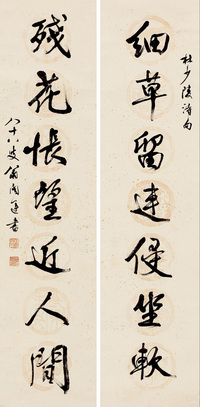 杜少陵詩句
細草留連侵坐軟
残花悵望近人開
八十八叟翁闓運書